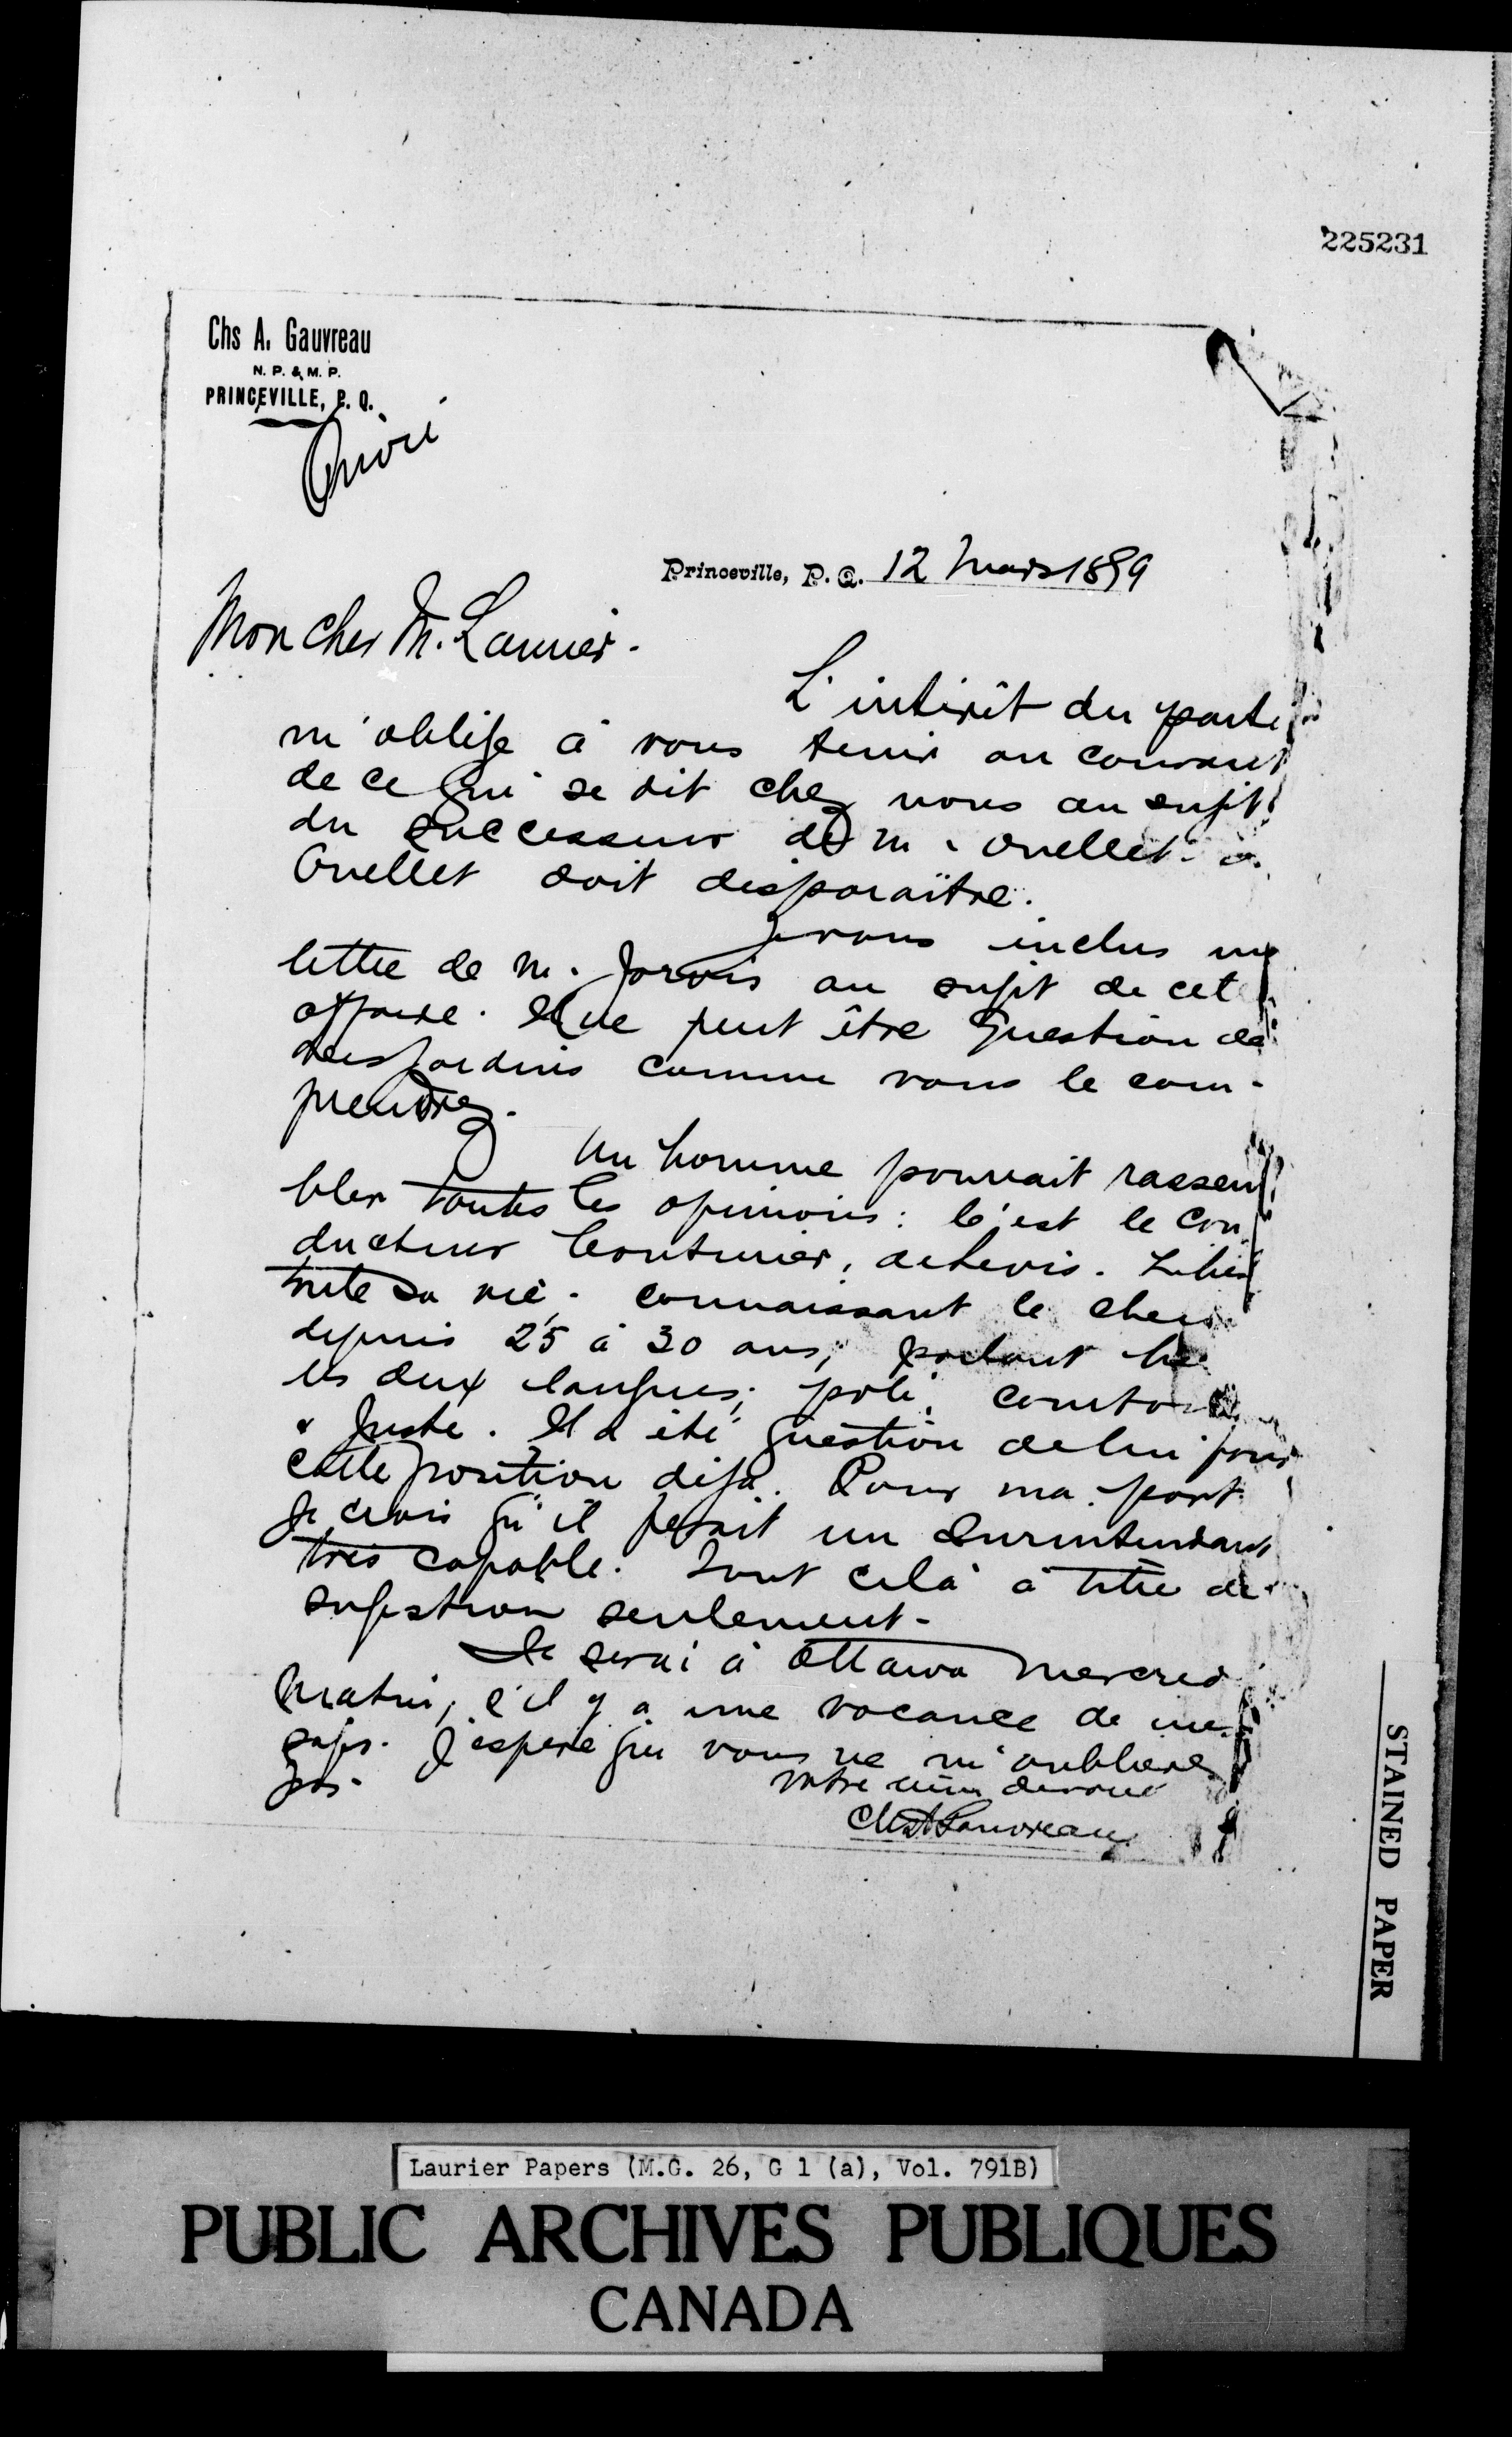 225231
Chs A. Gauvreau
N. P. & M. P.
PRINCEVILLE, P. Q.
Privé
Princeville, P. Q. 12 Mars 1899
Mon cher M. Laurier.
L'intérêt du parti
m'oblige à vous tenir au courant
de ce qui se dit chez nous au sujet
du successeur de M. Ouellet
Ouellet doit disparaître.
Je vous inclus une
lettre de M. Jarvis au sujet de cet
affaire. Il ne peut être question de
Desjardins comme vous le com-
prendrez.
Un homme pourrait rassem
bler toutes les opinions: C'est le con
ducteur Couturier, de Levis.
toute sa vie. connaissant le
depuis 25 à 30 ans, parlant
les deux langues; poli,
& juste. Il a été question de lui pour
cette position déjà. Pour ma part
Je crois qu'il ferait un Surintendant
très capable. Tout celà à titre de
sugestion seulement-
Je serai à Ottawa mercredi
Matin, s'il y a une vacance de
gages. J'espère que vous ne m'oublierez
pas.
Votre ami dévoué
Chs A Gauvreau
STAINED PAPER
Laurier Papers (M.G. 26, G 1 (a), Vol. 791B)
PUBLIC ARCHIVES PUBLIQUES
CANADA